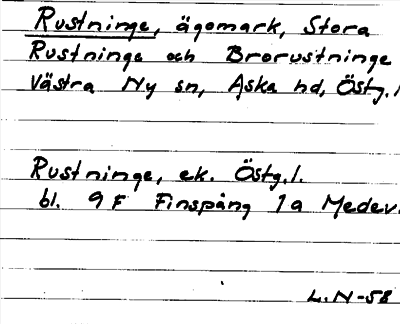 Rustninge, ägomark, Stora
Rustninge och Brorustninge
Västra Ny sn, Aska hd, Östg.l
Rustninge, ek. Östg.l.
bl. 9 F Finspång 1a Medev.
L.N-58